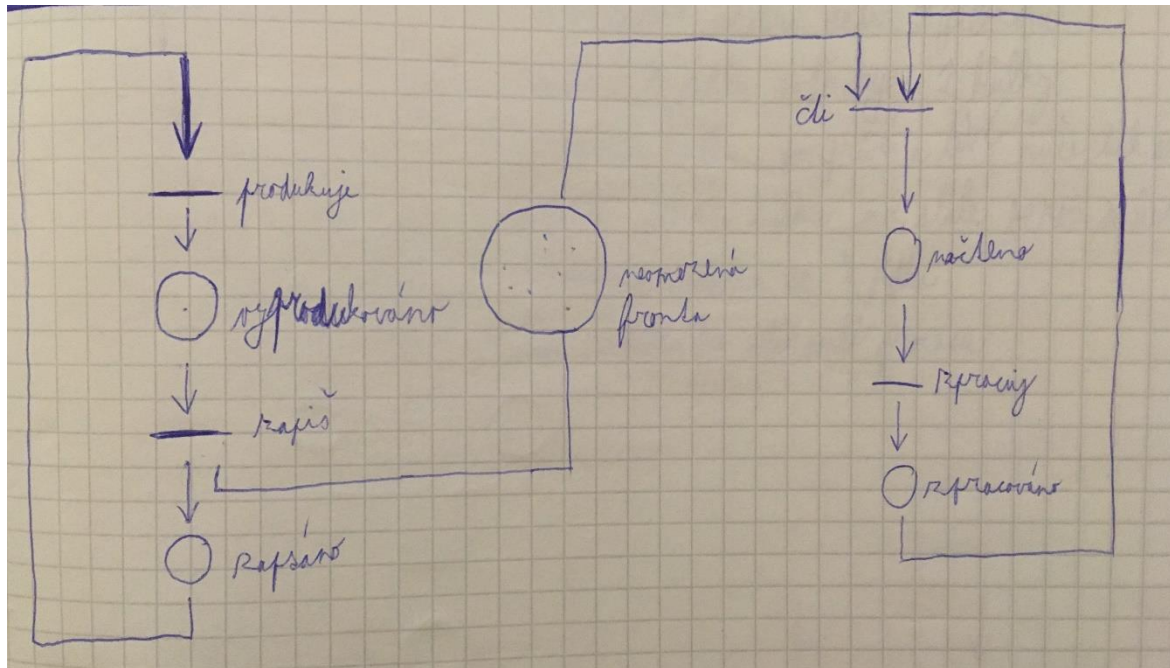 produkuje
vyprodukováno
zapiš
zapsáno
neomezená
fronta
čti
načteno
zpracuj
zpracováno